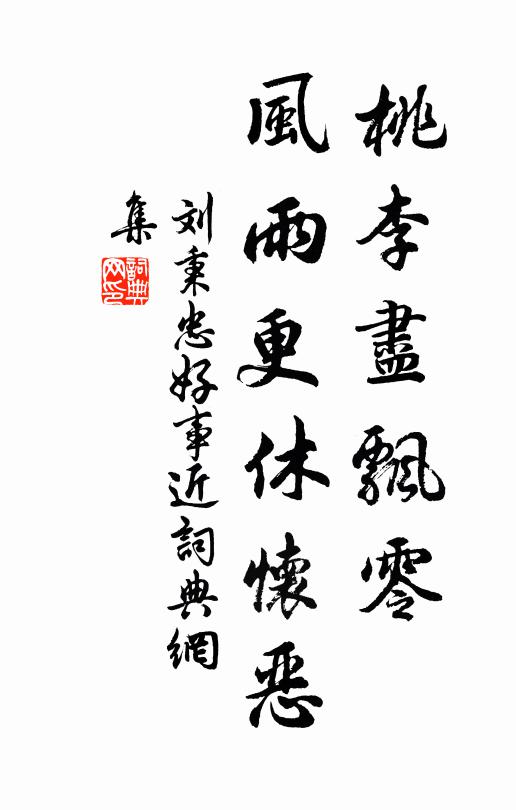 桃李盡飄零
風雨更休懷惡
刘秉忠好事近詞典網
集
詞典网印